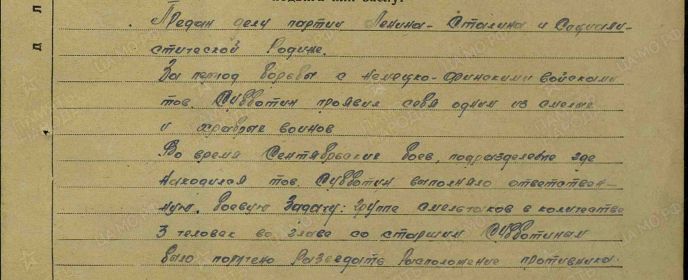 Предан делу партии Ленина-Сталина и Социали-
стической Родине.
За период борьбы с немецко-финскими войсками
тов. Субботин проявил себя одним из смелых
и храбрых воинов
Во время Сентябрьских боев, подразделение где
находился тов. Субботин выполняло ответствен-
ную, боевую задачу: группе смельчаков в количестве
3 человек во главе со старшим Субботиным
было поручено разведать расположение противника.